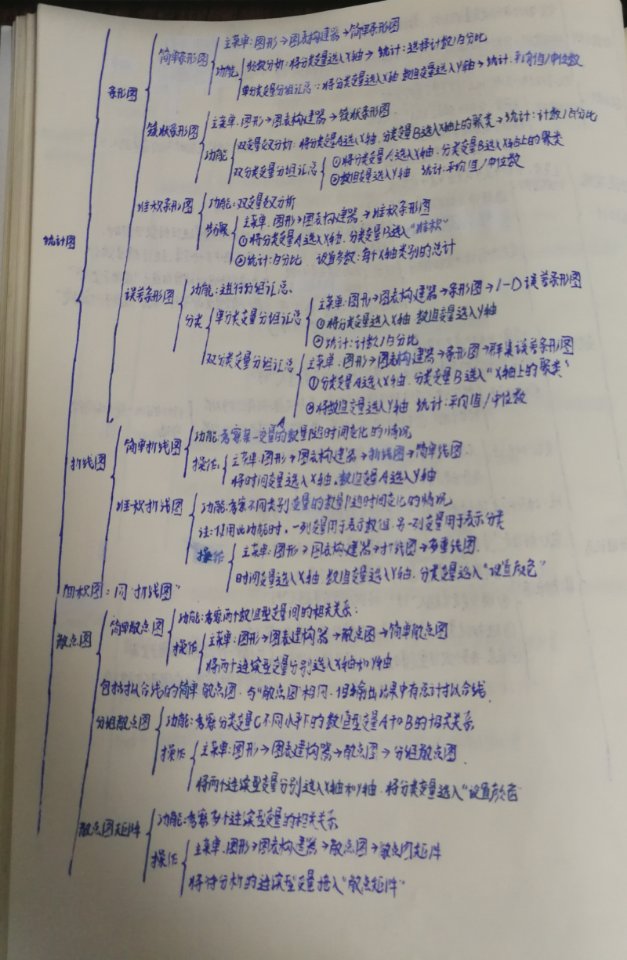 统计图
条形图
简单条形图
主菜单:图形→图表构建器→简单条形图
功能
频数分析:将分类变量选入X轴→统计:选择计数/百分比
单分类变量分组汇总:将分类变量选入X轴 数值变量选入Y轴→统计:平均值/中位数
簇状条形图
主菜单:图形→图表构建器→簇状条形图
功能
双变量交叉分析:将分类变量A选入X轴,分类变量B选入X轴上的聚类→统计:计数/百分比
双分类变量分组汇总
①将分类变量A选入X轴,分类变量B选入X轴上的聚类
②数值变量选入Y轴 统计:平均值/中位数
堆积条形图
功能:双变量交叉分析
步骤
主菜单:图形→图表构建器→堆积条形图
①将分类变量选入X轴,分类变量B选入"堆积"
②统计:百分比 设置参数:每个X轴类别的总计
误差条形图
功能:进行分组汇总
分类
单分类变量分组汇总
主菜单:图形→图表构建器→条形图→1-D误差条形图
①将分类变量选入X轴 数值变量选入Y轴
②统计:计数/百分比
双分类变量分组汇总
主菜单:图形→图表构建器→条形图→群集误差条形图
①分类变量A选入X轴,分类变量B选入"X轴上的聚类"
②将数值变量选入Y轴 统计:平均值/中位数
折线图
简单折线图
功能:考察某一变量A的数量随时间变化的情况
操作:
主菜单:图形→图表构建器→折线图→简单线图
将时间变量选入X轴,数值变量A选入Y轴
堆积折线图
功能:考察不同类别变量的数量随时间变化的情况
注:使用此功能时,一列变量用于表示数值,另一列变量用于表示分类
操作
主菜单:图形→图表构建器→折线图→多重线图
时间变量选入X轴 数值变量选入Y轴,分类变量选入"设置颜色"
面积图:同"折线图"
散点图
简单散点图
功能:考察两个数值型变量间的相关关系
操作
主菜单:图形→图表构建器→散点图→简单散点图
将两个连续型变量分别选入X轴和Y轴
包括拟合线的简单散点图:与"散点图"相同,但输出结果中有总计拟合线
分组散点图
功能:考察分类变量C不同水平下的数值型变量A和B的相关关系
操作
主菜单:图形→图表构建器→散点图→分组散点图
将两个连续型变量分别选入X轴和Y轴,将分类变量选入"设置颜色
散点图矩阵
功能:考察多个连续型变量的相关关系
操作
主菜单:图形→图表构建器→散点图→散点图矩阵
将待分析的连续型变量拖入"散点矩阵"